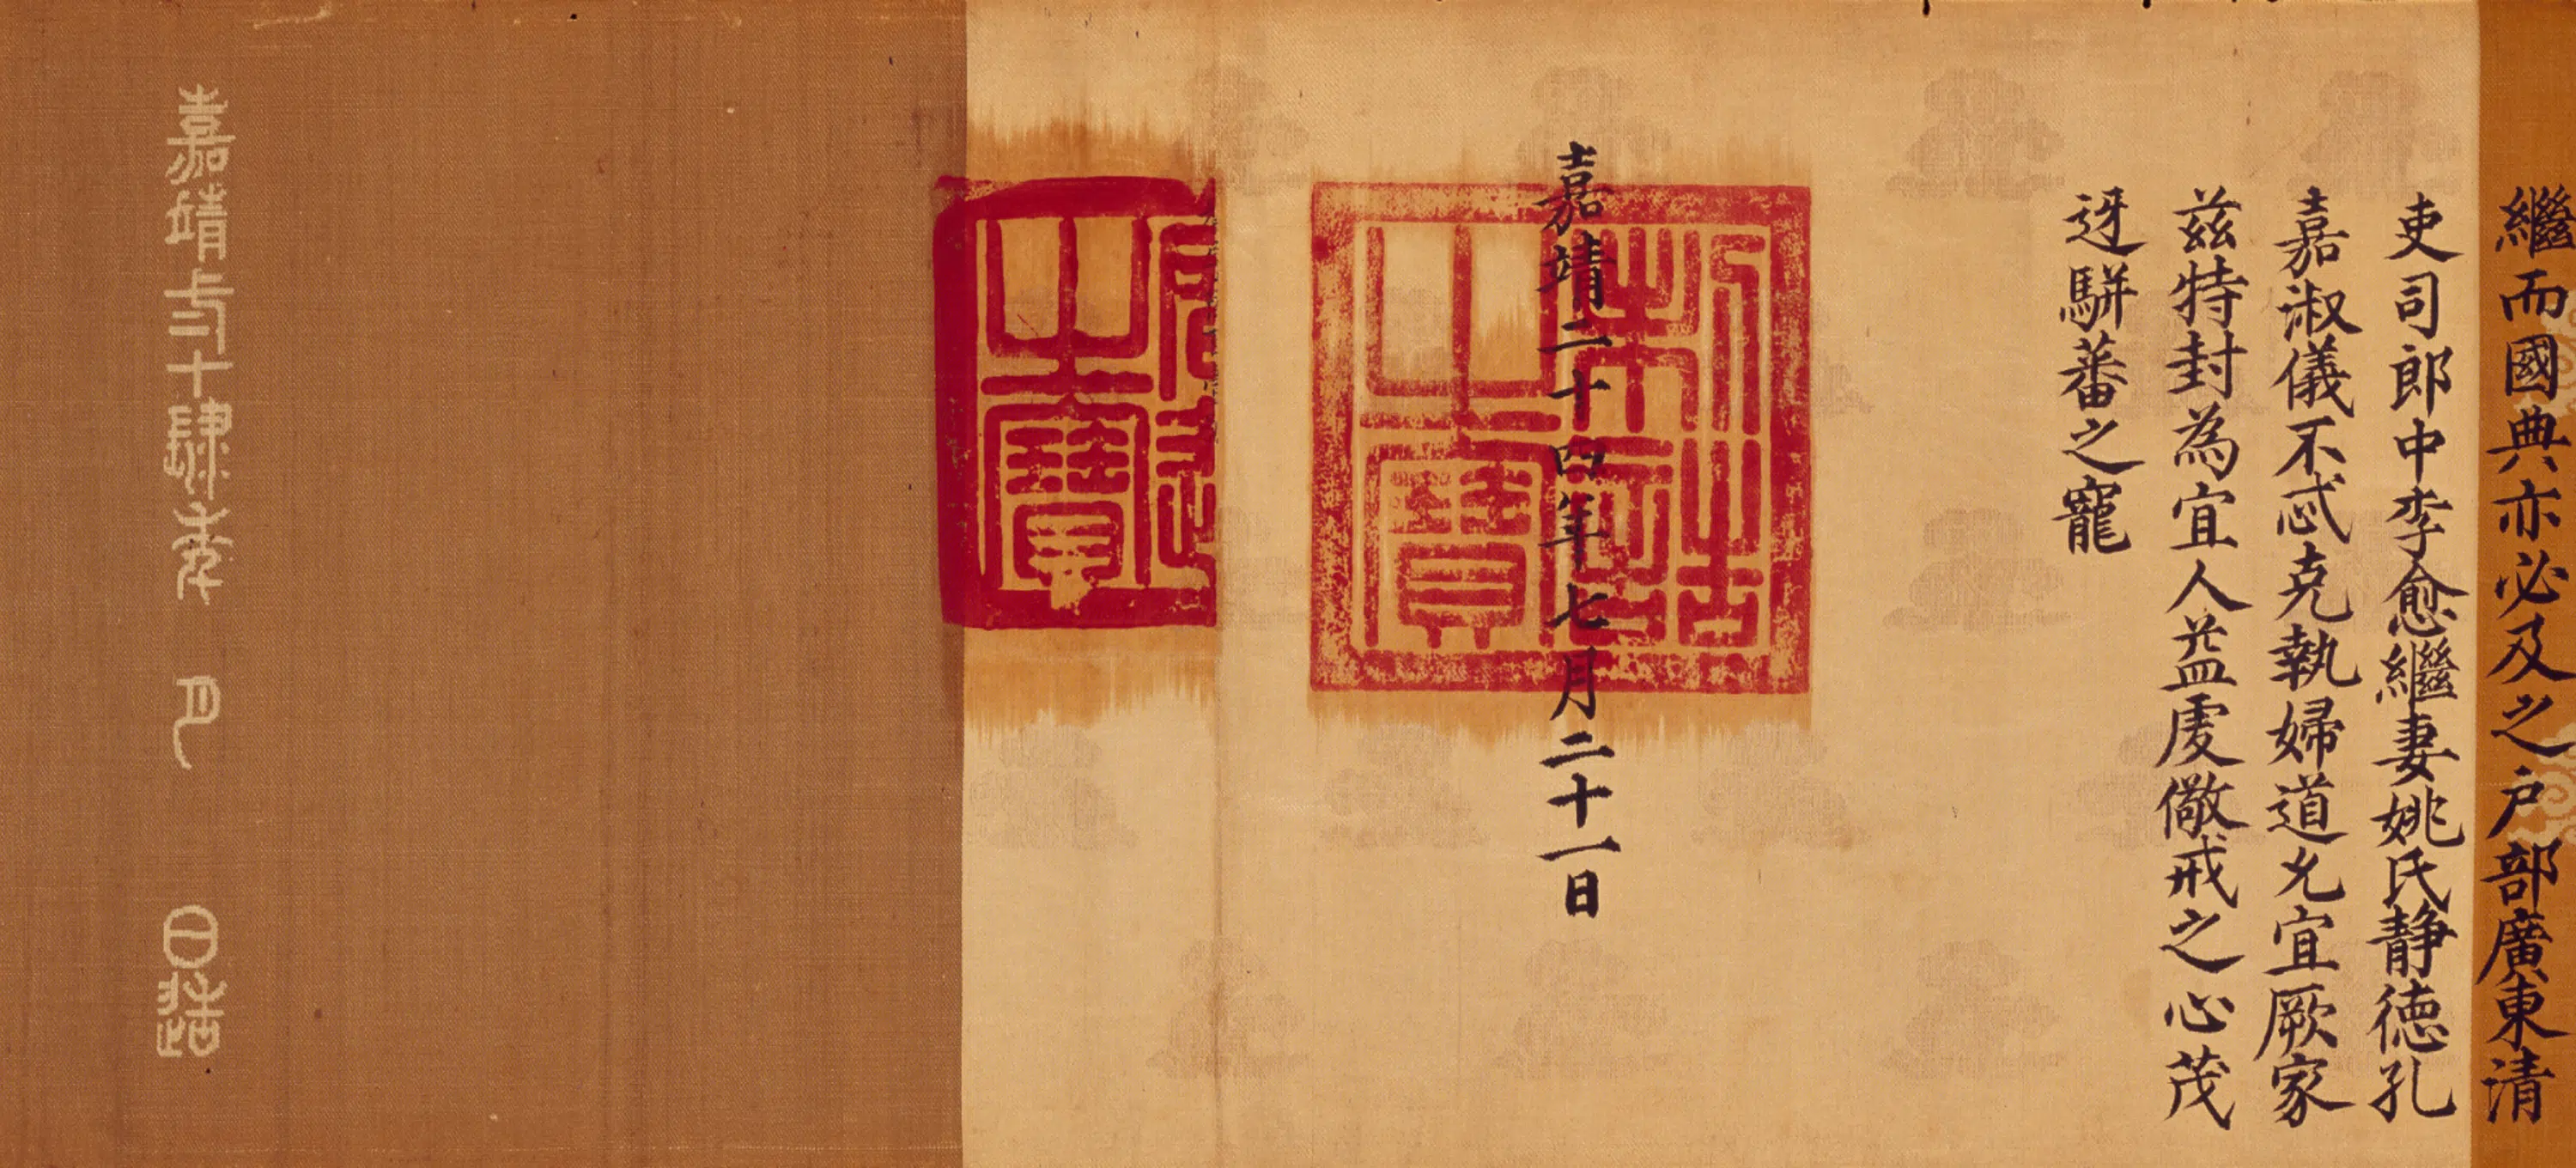 繼而國典亦必及之户部廣東清
吏司郎中李愈繼妻姚氏静德孔
嘉淑儀不忒克執婦道允宜厥家
兹特封為宜人益虔儆戒之心茂
迓駢蕃之寵
嘉靖二十四年七月二十一日
制誥之寶
之寶
嘉靖貳十肆年 月 日造